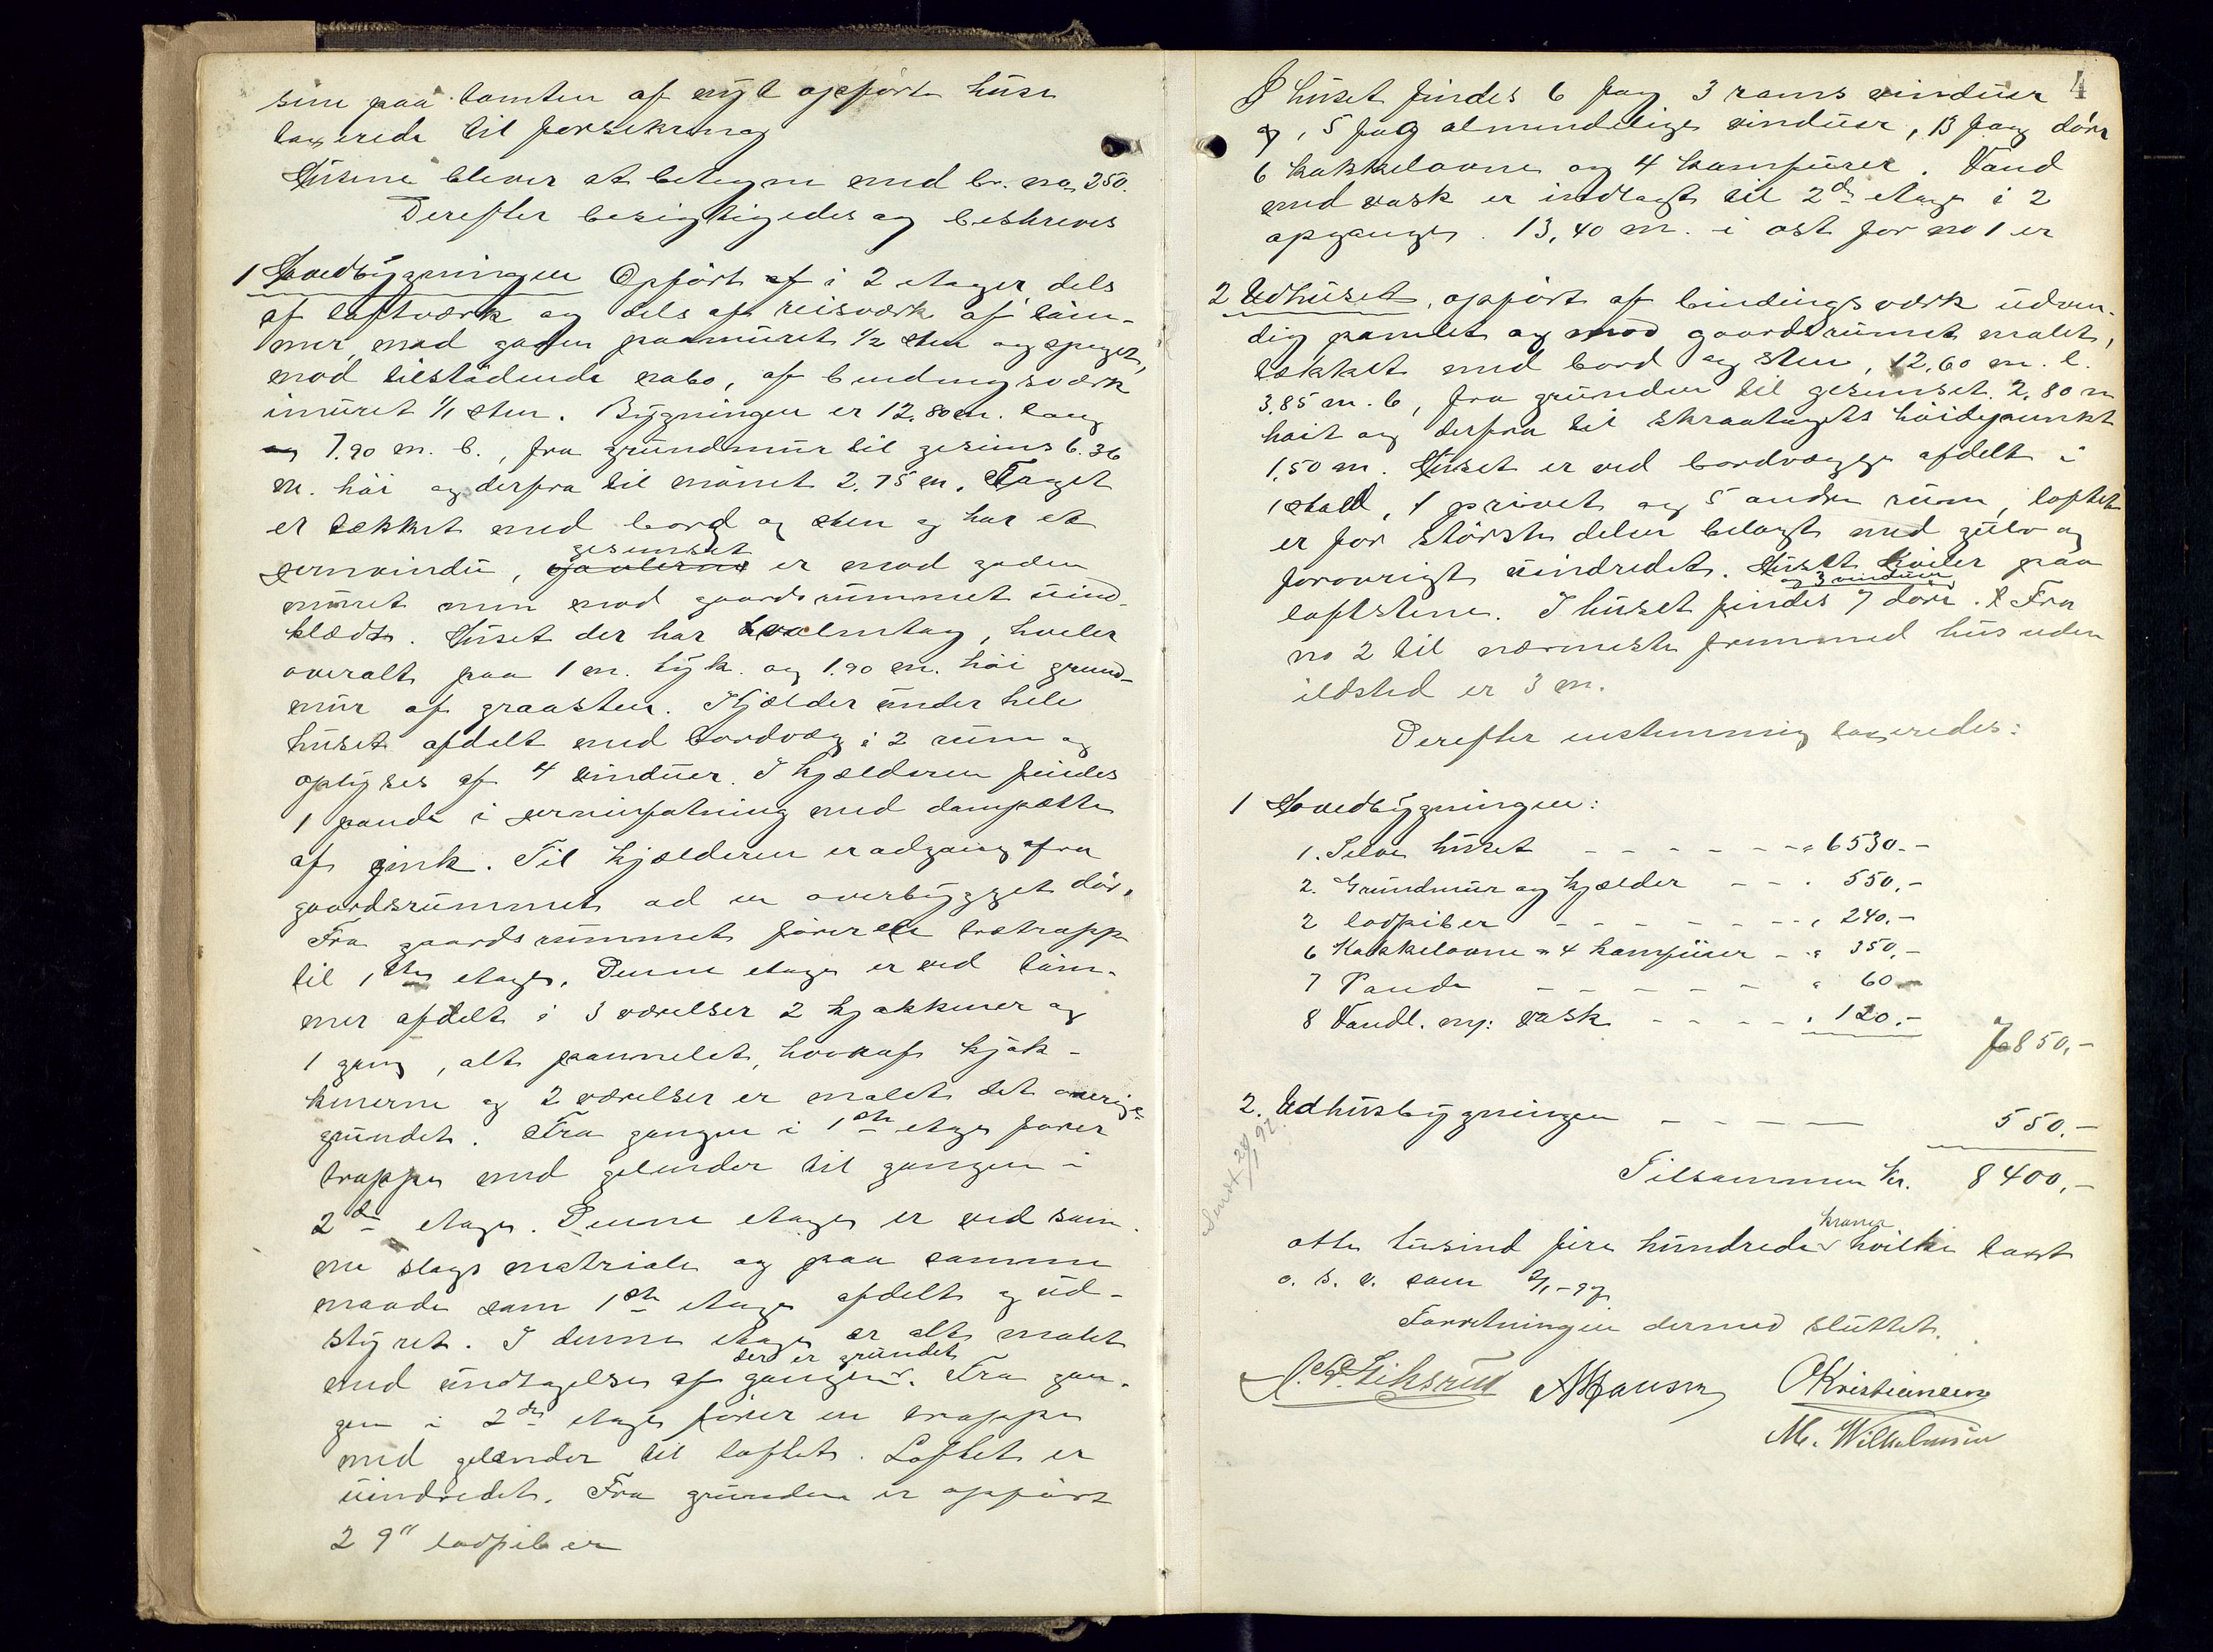 sine paa tomten af nyt opførte huse
taxerede til forsikring
Husene bliver at betegne med br. no 250.
Derefter besigtigedes og beskreves
1 Hovedbygningen Opført af i 2 etager dels
af laftværk og dels af reisværk af töm-
mer, mod gaden paamuret ½ sten og speget,
mod tilstödende nabo, af bindingsværk
imuret 1/1 sten. Bygningen er 12,80 m. lang
og 7.90 m. b., fra grundmur til gesims 6.36
m. höi og derfra til mönet 2.75 m. Taget
er tækket med bord og sten og har et
jernvindu, gavlerne gesimset er mod gaden
muret men mod gaardsrummet uind-
klædt. Huset der har valmtag, hviler
overalt paa 1 m. tyk. og 1.90 m. höi grund-
mur af graasten. Kjælder under hele
huset afdelt med bordvæg i 2 rum og
oplyses af 4 vinduer. I kjælderen findes
1 pande i jerninfatning med damphætte
af zink. Til kjælderen er adgang fra
gaardsrummet ad en overbygget dör.
Fra gaardsrummet förer en trætrappe
til 1ste etage. Denne etage er ved töm-
mer afdelt i 3 værelser 2 kjøkkener og
1 gang, alt pannelet, hvoraf kjøk-
kenerne og 2 værelser er malet det øvrige
grundet. Fra gangen i 1ste etage förer
trappe med gelænder til gangen i
2den etage. Denne etage er ved sam-
me slags matriale og paa samme
maade som 1ste etage afdelt og ud-
styret. I denne etage er alt malet
med undtagelse af gangen der er grundet. Fra gan-
gen i 2den etage förer en trappe
med gelænder til loftet. Loftet er
uindredet. Fra grunden er opført
2 9" lodpiber
4
I huset findes 6 fag 3 rams vinduer
og, 5 fag almindelige vinduer, 13 fag döre
6 kakkelovne og 4 komfurer. Vand
med vask er indlagt til 2den etage i 2
opgange. 13,40 m. i øst for no 1 er
2 Udhuset, opført af bindingsværk udven-
dig panelet og mod gaardsrummet malet,
tækket med bord og sten, 12,60 m. l.
3.85 m. b, fra grunden til gesimset 2,80 m
höit og derfra til skraatagets höidepunkt
1,50 m. Huset er ved bordvægge afdelt i
1 stald, 1 privet og 5 andre rum, loftet
er for störste delen belagt med gulv og
forövrigt uindredet. Huset hviler paa
loftstene. I huset findes 7 döre og 3 vinduer. Fra
no 2 til nærmeste fremmed hus uden
ildsted er 3 m.
Derefter enstemmig taxeredes:
1 Hovedbygningen:
1. Selve huset - - - - - - - " 6530.-
2. Grundmur og kjælder - - - 550,-
2 lodpiber - - - - - - - " 240.-
6 Kakkelovne + 4 komfurer - " 350,-
7 Pande - - - - - - " 60 -
8 Vandl. m: vask - - - - " 120.-
7850,-
2. Udhusbygningen - - - - - 550.-
Tilsammen kr. 8400,-
Sendt 29/1 92.
otte tusind fire hundrede kroner hvilke taxt
o. s. v. som 2/1-92
Forretningen dermed sluttet.
OKristiansen
M. Wilhelmsen